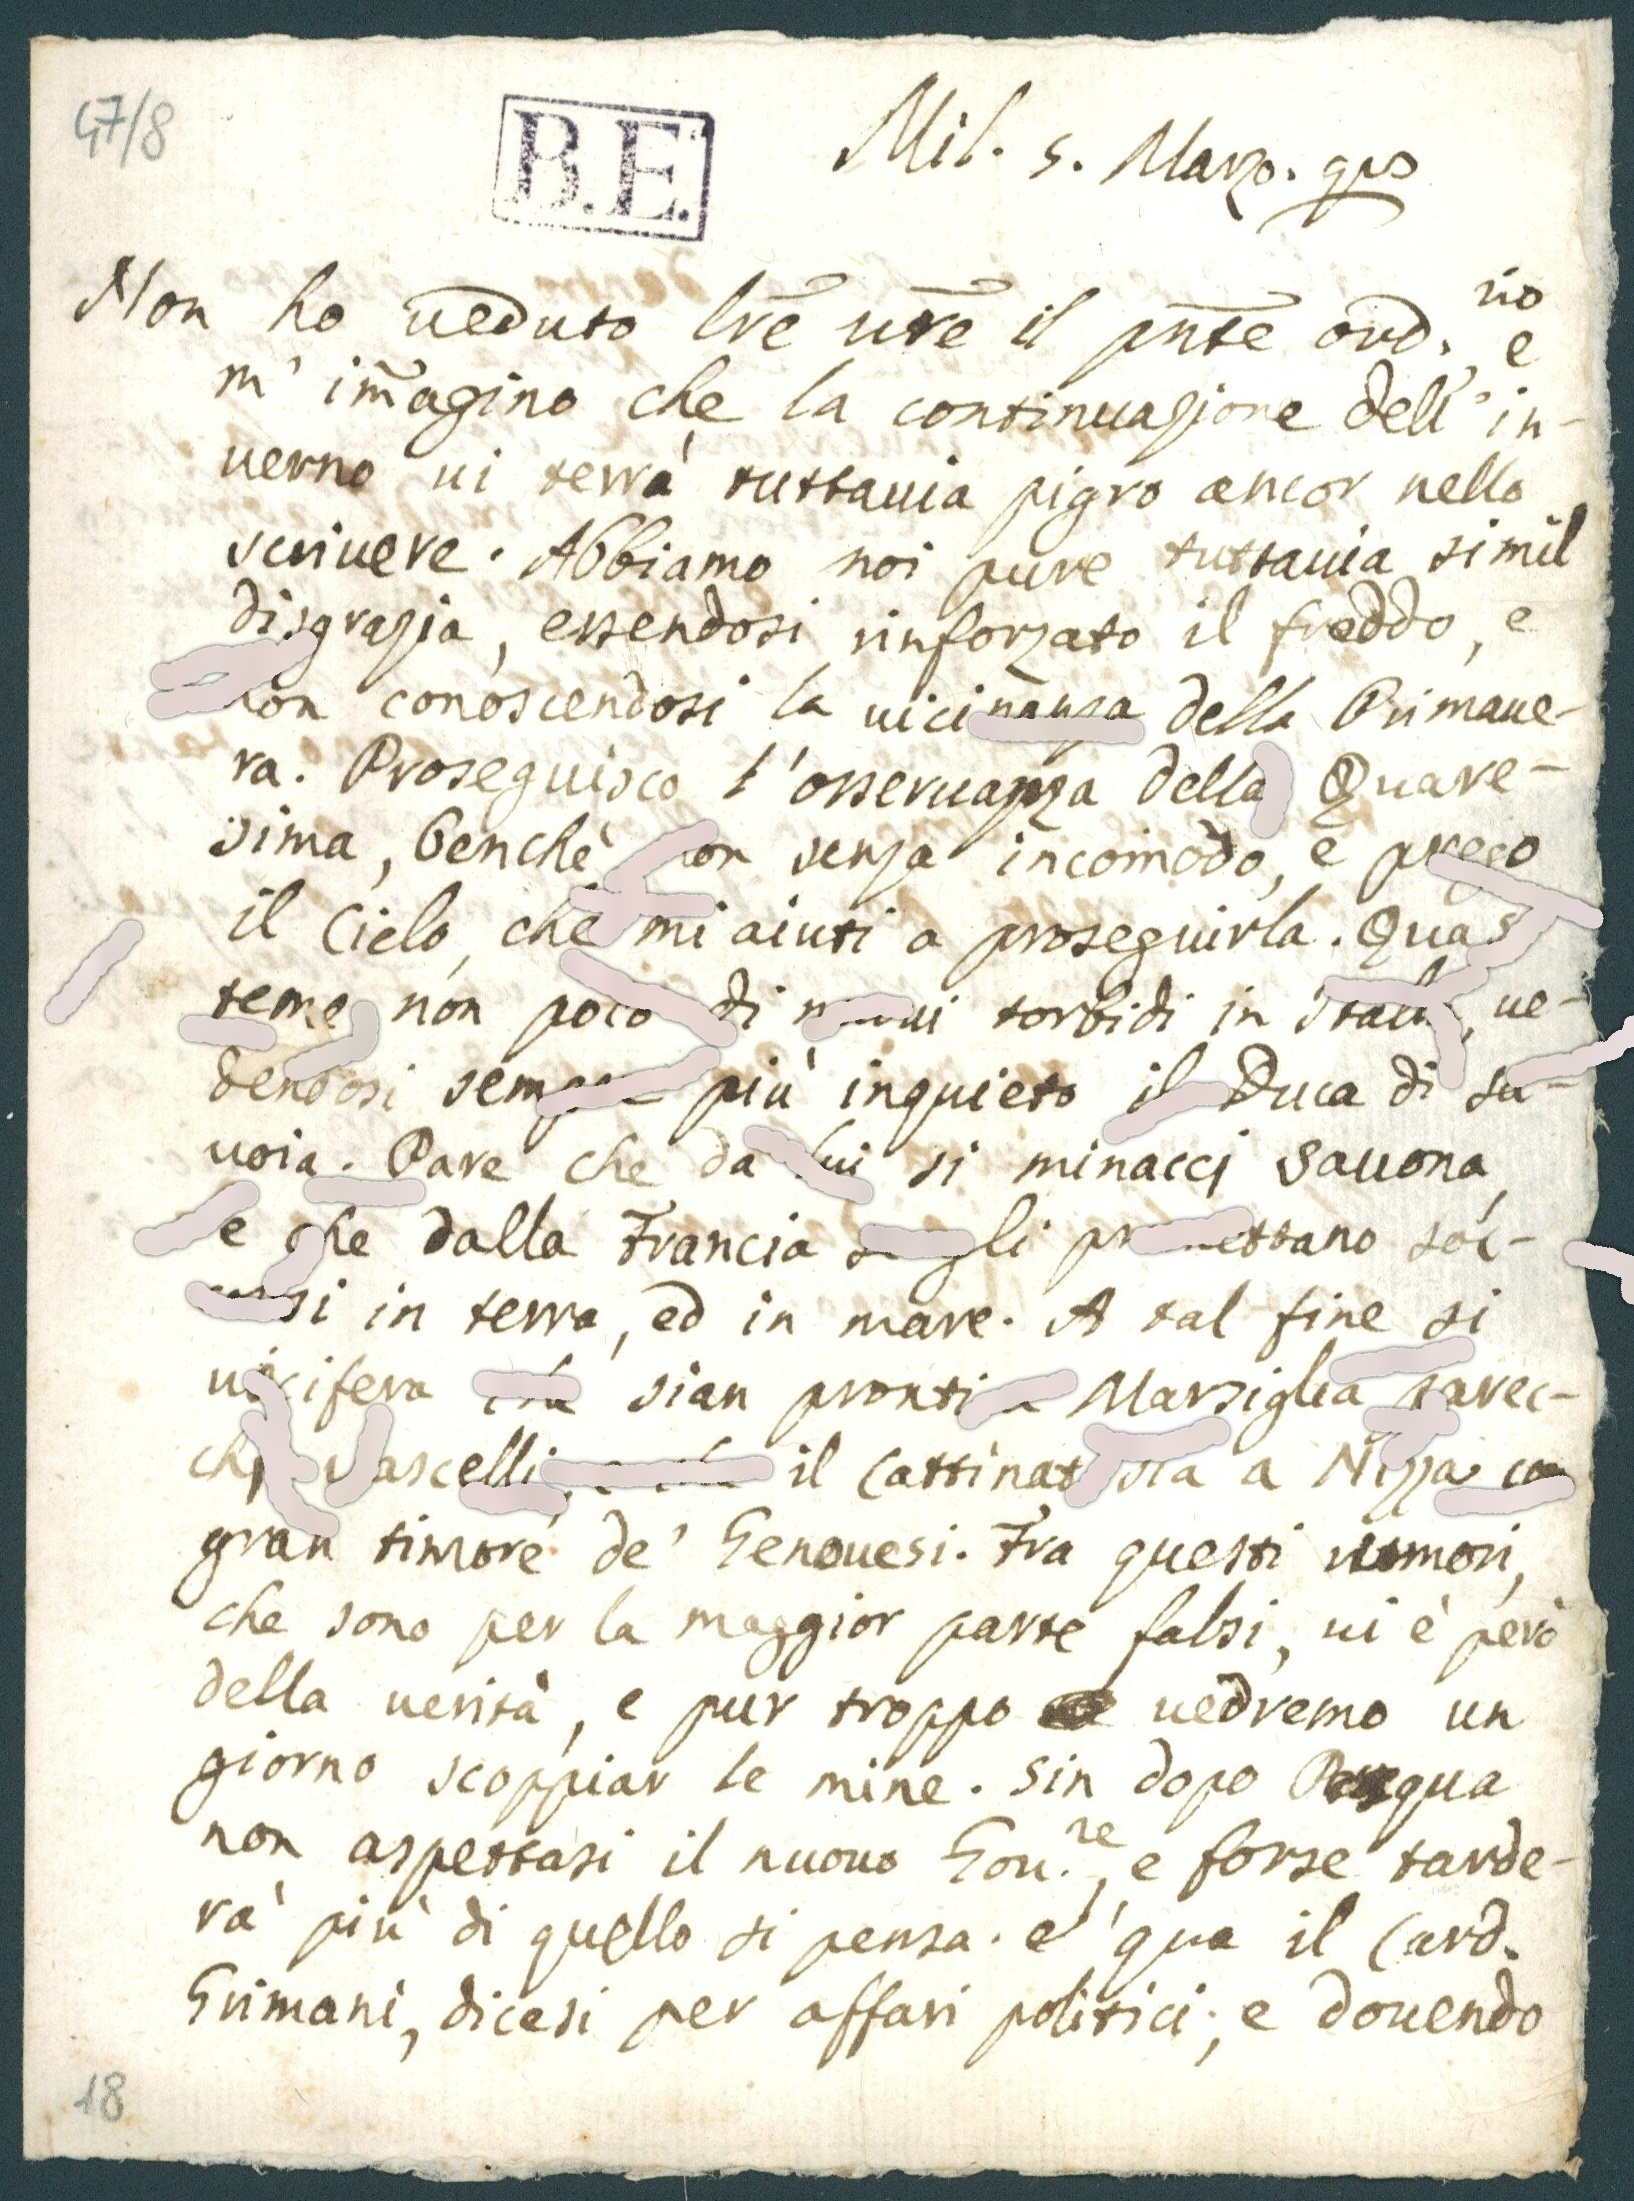 47/8
B.E.
Mil. 5. Marzo. 98
Non ho ueduto lre ure il pnte ord.rio e
m' immagino che la continuazione dell' in-
uerno ui terrà tuttauia pigro ancor nello
scriuere. Abbiamo noi pure tuttauia simil
disgrazia, essendosi rinforzato il freddo, e
non conoscendosi la uicinanza della Primaue-
ra. Proseguisco l'osseruanza della Quare-
sima, benchè non senza incomodo, e prego
il Cielo, che mi aiuti a proseguirla. Quà si
teme non poco di nuoui torbidi in Italia, ue-
dendosi sempre più inquieto il Duca di Sa-
uoia. Pare che da lui si minacci Sauona,
e che dalla Francia se gli promettano soc-
corsi in terra, ed in mare. A tal fine si
uocifera che sian pronti a Marsiglia parec-
chi Vascelli, e che il Cattinat stia a Nizza con
gran timore de' Genouesi. Fra questi rumori,
che sono per la maggior parte falsi, ui è però
della uerità, e pur troppo uedremo un
giorno scoppiar le mine. Sin dopo Pasqua
non aspettasi il nuouo Gou.re, e forse tarde-
rà più di quello si pensa. e' qua il Card.
Grimani, dicesi per affari politici; e douendo
18